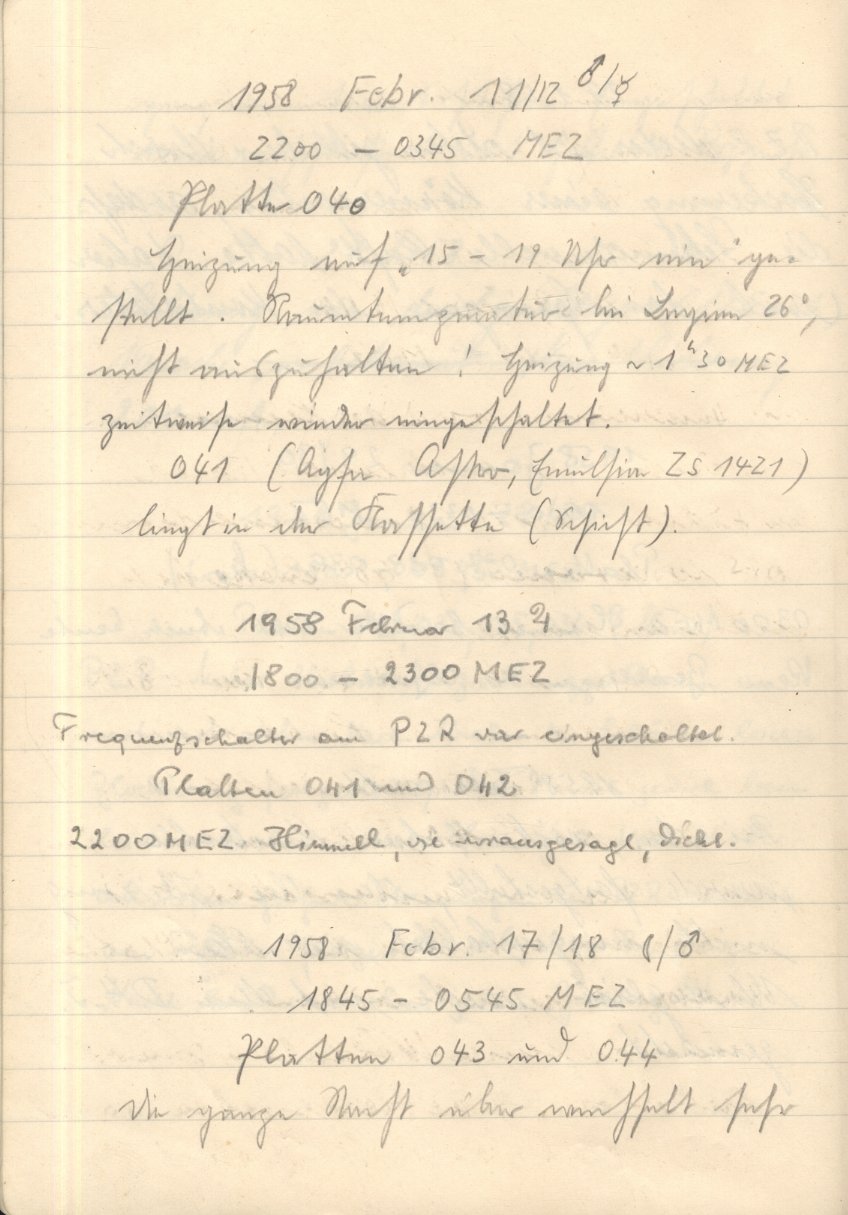 1958 Febr. 11/12 ♂/☿
2200 – 0345 MEZ
Platte 040
Heizung auf „15 – 19 Uhr ein“ ge-
stellt. Raumtemperatur bei Beginn 26°,
nicht auszuhalten! Heizung ~ 1ʰ30 MEZ
zeitweise wieder eingeschaltet.
041 (Agfa Astro, Emulsion ZS 1421)
liegt in der Kassette (Schicht).
1958 Februar 13 ♃
1800 – 2300 MEZ
Frequenzschalter am PZR war eingeschaltet.
Platten 041 und 042
2200 MEZ Himmel, wie vorausgesagt, dicht.
1958 Febr. 17/18 ☾/♂
1845 – 0545 MEZ
Platten 043 und 044
Die ganze Nacht über wechselt sehr